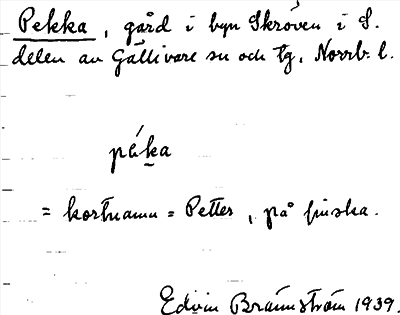 Pekka, gård i byn Skröven i S.
delen av Gällivare sn och tg, Norrb. l.
péka
= kortnamn = Petter, på finska.
Edvin Brännström 1939.